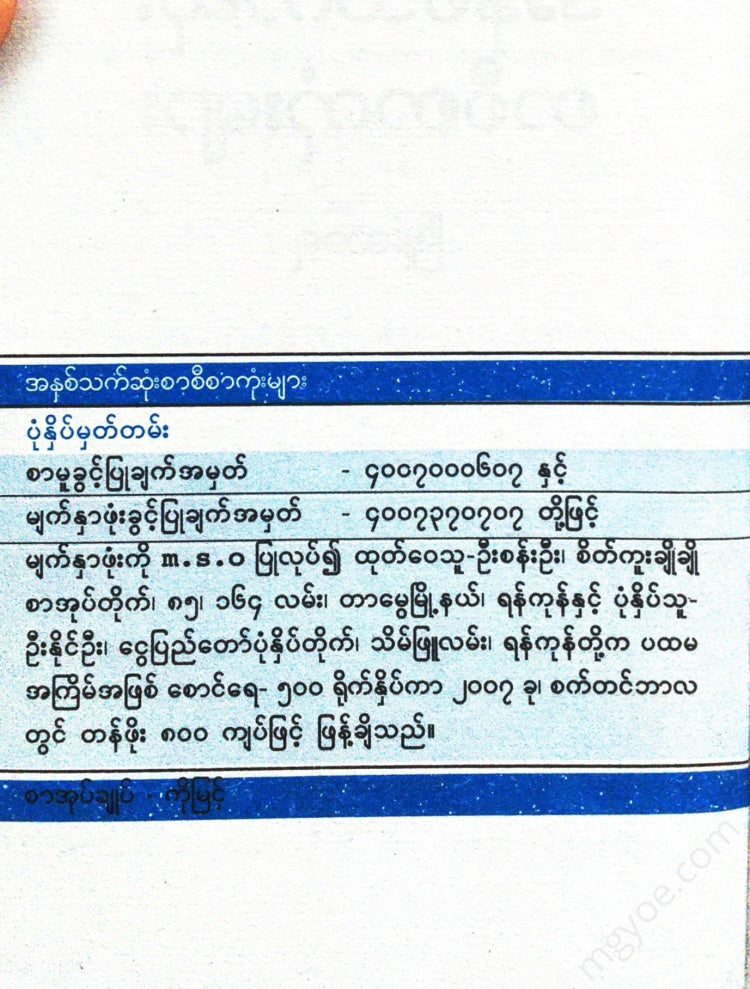 အနှစ်သက်ဆုံးစာစီစာကုံးများ
ပုံနှိပ်မှတ်တမ်း
စာမူခွင့်ပြုချက်အမှတ် - ၄၀၀၇၀၀၀၆၀၇ နှင့်
မျက်နှာဖုံးခွင့်ပြုချက်အမှတ် - ၄၀၀၇၃၇၀၇၀၇ တို့ဖြင့်
မျက်နှာဖုံးကို m.s.o ပြုလုပ်၍ ထုတ်ဝေသူ-ဦးစန်းဦး၊ စိတ်ကူးချိုချို
စာအုပ်တိုက်၊ ၈၅၊ ၁၆၄ လမ်း၊ တာမွေမြို့နယ်၊ ရန်ကုန်နှင့် ပုံနှိပ်သူ-
ဦးနိုင်ဦး၊ ငွေပြည်တော်ပုံနှိပ်တိုက်၊ သိမ်ဖြူလမ်း၊ ရန်ကုန်တို့က ပထမ
အကြိမ်အဖြစ် စောင်ရေ- ၅၀၀ ရိုက်နှိပ်ကာ ၂၀၀၇ ခု၊ စက်တင်ဘာလ
တွင် တန်ဖိုး ၈၀၀ ကျပ်ဖြင့် ဖြန့်ချိသည်။
စာအုပ်ချုပ် - ကိုမြင့်
mgyoe.com